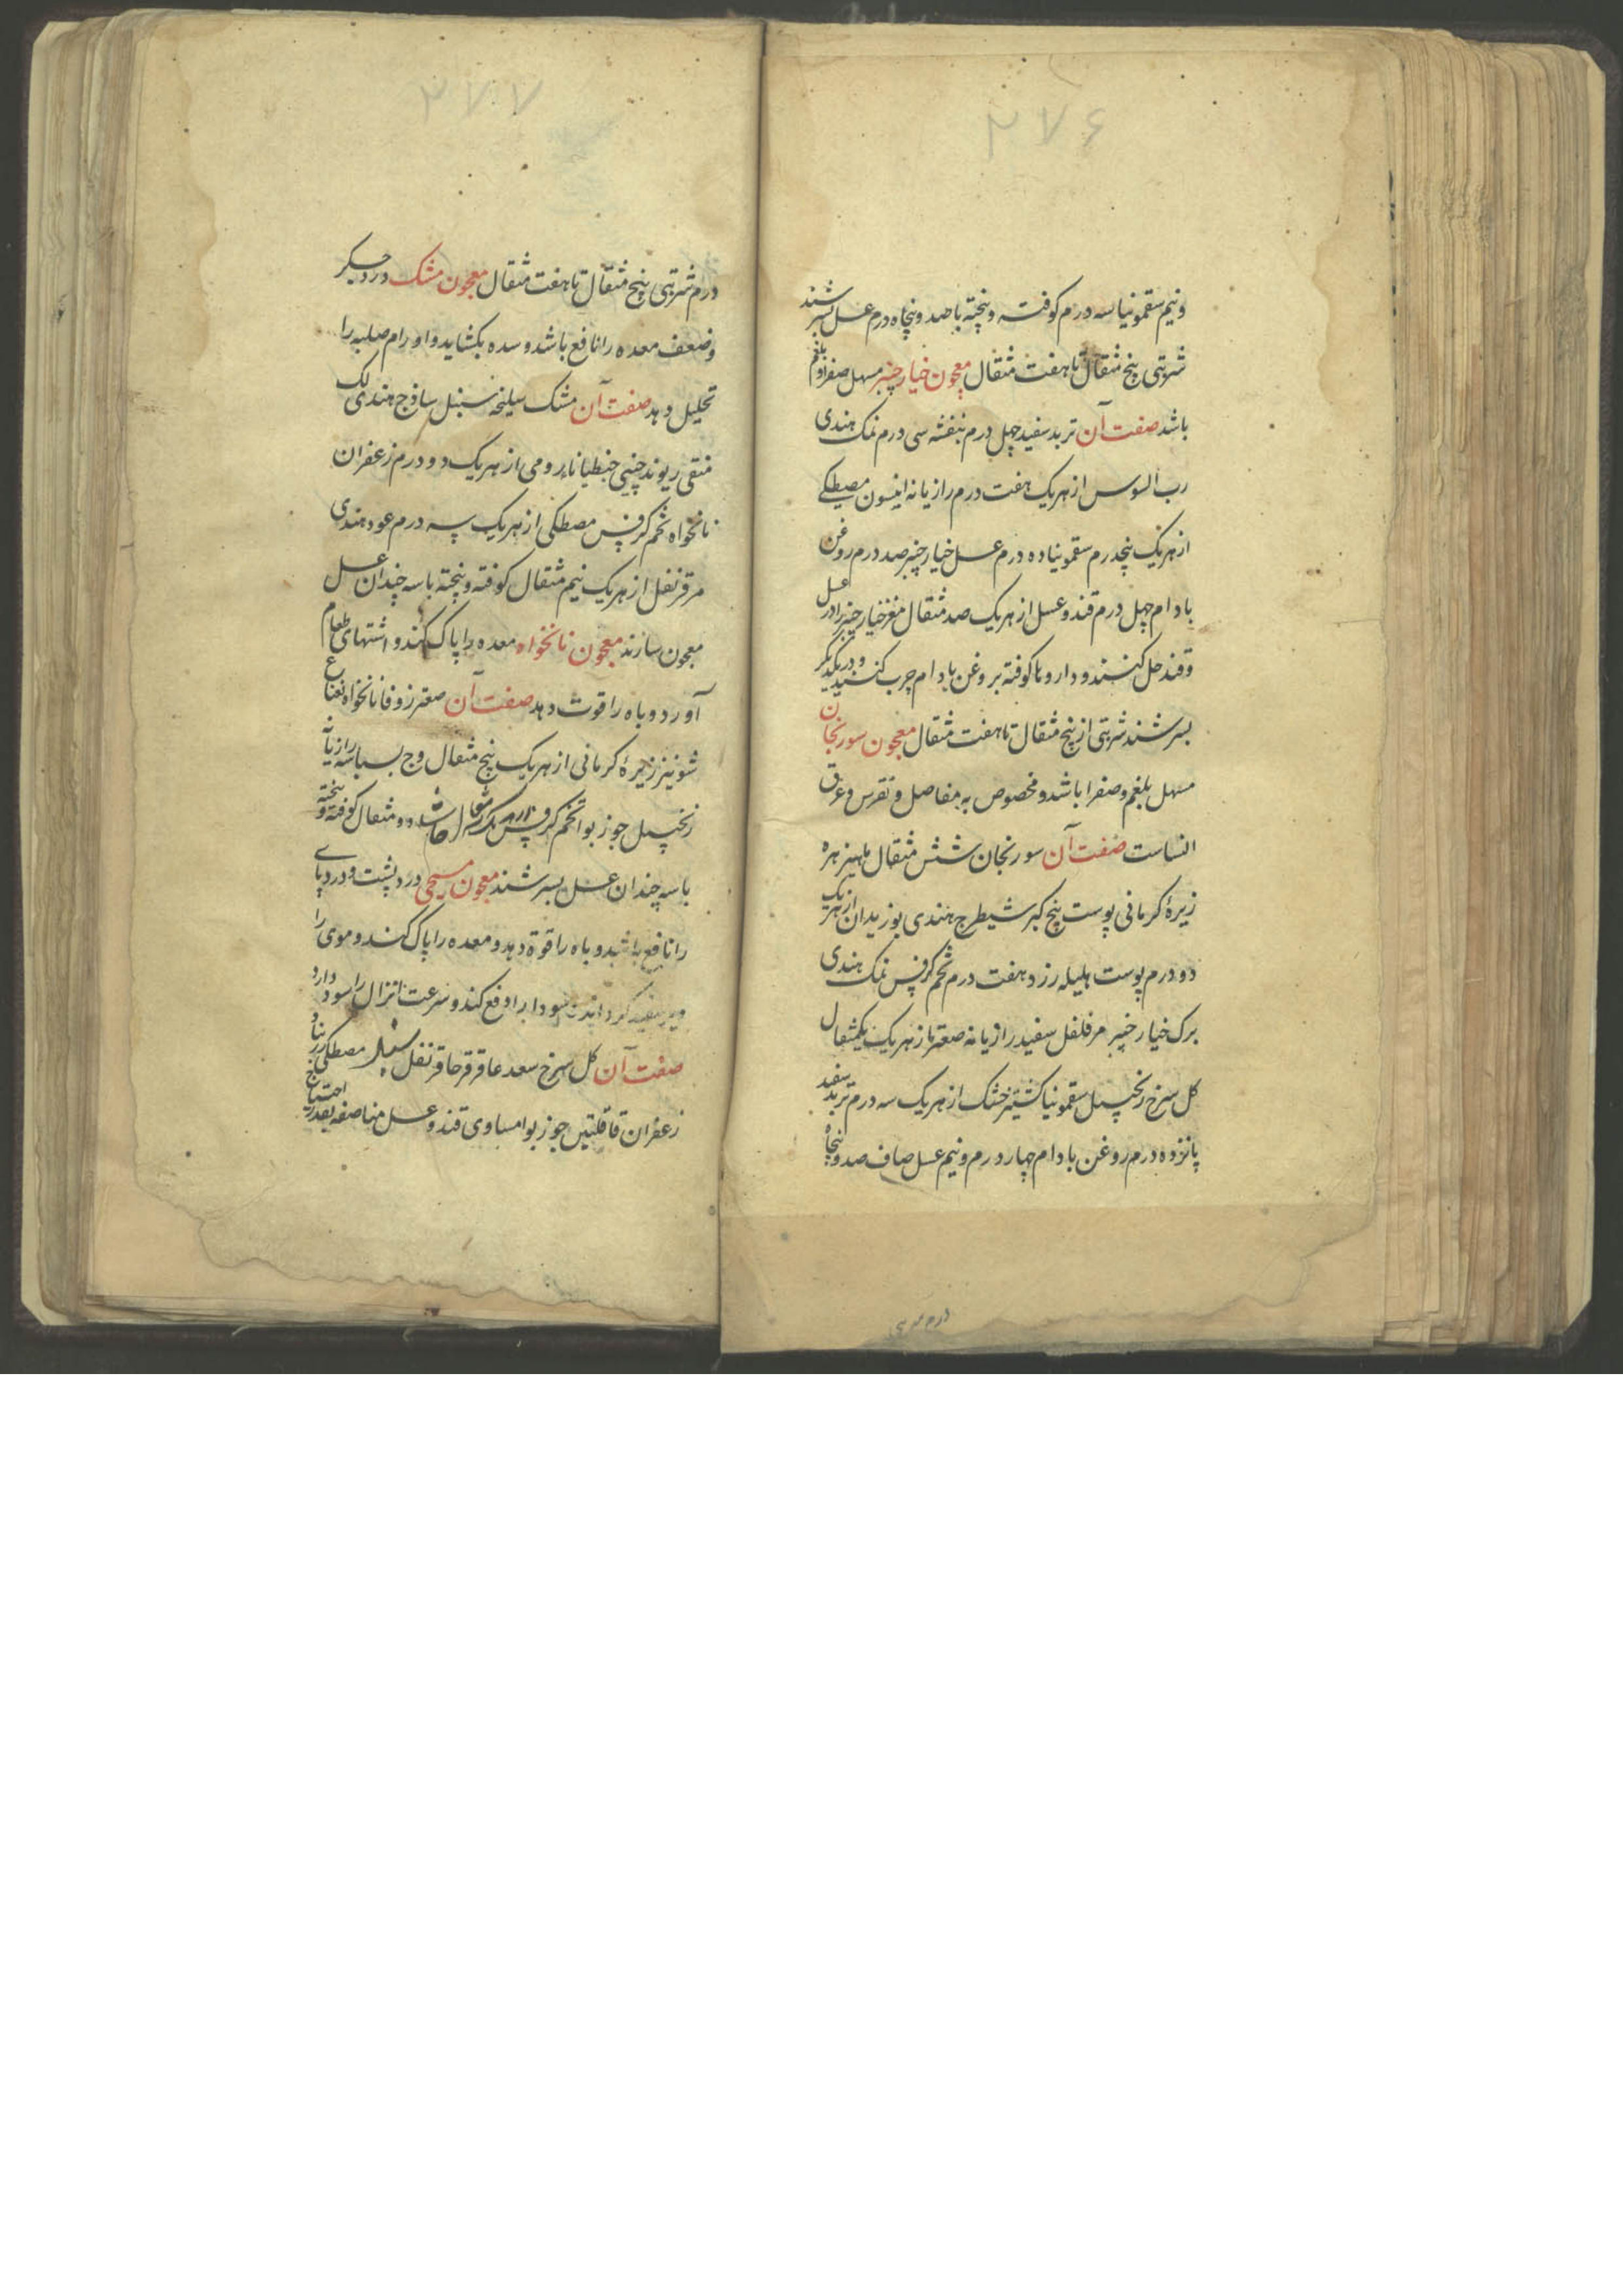 ۲۷۶
ونیم سقمونیا سه درم کوفته و پخته با صد و پنجاه درم عسل بسرشند
شربتی پنج مثقال تا هفت مثقال معجون خیار چنبر مسهل صفرا و بلغم
باشد صفت آن تربد سفید چهل درم بنفشه سی درم نمک هندی
رب السوس از هر یک هفت درم رازیانه انیسون مصطکی
از هر یک پنجدرم سقمونیا ده درم عسل خیار چنبر صد درم روغن
بادام چهل درم قند و عسل از هر یک صد مثقال مغز خیار چنبر را در عسل
و قند حل کنند و دارو ها کوفته بروغن بادام چرب کنند و در یکدیگر
بسرشند شربتی از پنج مثقال تا هفت مثقال معجون سورنجان
مسهل بلغم و صفرا باشد و مخصوص به مفاصل و نقرس و عرق
النساست صفت آن سورنجان شش مثقال ماهیزهره
زیرهٔ کرمانی پوست بیخ کبر شیطرج هندی بوزیدان از هر یک
دو درم پوست هلیله زرد هفت درم تخم کرفس نمک هندی
برک خیار چنبر مر فلفل سفید رازیانه صعتر از هر یک یکمثقال
کل سرخ زنجبیل سقمونیا کشنیز خشک از هر یک سه درم تربد سفید
پانزده درم روغن بادام چهار درم ونیم عسل صاف صد و پنجاه
۲۷۷
درم شربتی پنج مثقال تا هفت مثقال معجون مشک درد جگر
و ضعف معده را نافع باشد و سده بکشاید و اورام صلبه را
تحلیل دهد صفت آن مشک سلیخه سنبل ساذج هندی لک
منقی ریوند چینی جنطیاناء رومی از هر یک دو درم زعفران
نانخواه تخم کرفس مصطکی از هر یک سه درم عود هندی
مر قرنفل از هر یک نیم مثقال کوفته و پخته با سه چندان عسل
معجون سازند معجون نانخواه معده را پاک کند و اشتهای طعام
آورد و باه را قوت دهد صفت آن صعتر زوفا نانخواه نعناع
شونیز زیرهٔ کرمانی از هر یک پنج مثقال وج بسباسه رازیانه
زنجبیل جوز بوا تخم کرفس از هر یک مثقال حاشا دو مثقال کوفته و پخته
با سه چندان عسل بسرشند معجون مسیحی درد پشت و درد پای
را نافع باشد و باه را قوة دهد و معده را پاک کند و موی را
دیر سفید کرداند سودا را دفع کند و سرعت انزال را سود دارد
صفت آن کل سرخ سعد عاقرقرحا قرنفل سنبل مصطکی زرنباد
زعفران قاقلتین جوز بوا مساوی قند و عسل مناصفه بقدر احتیاج